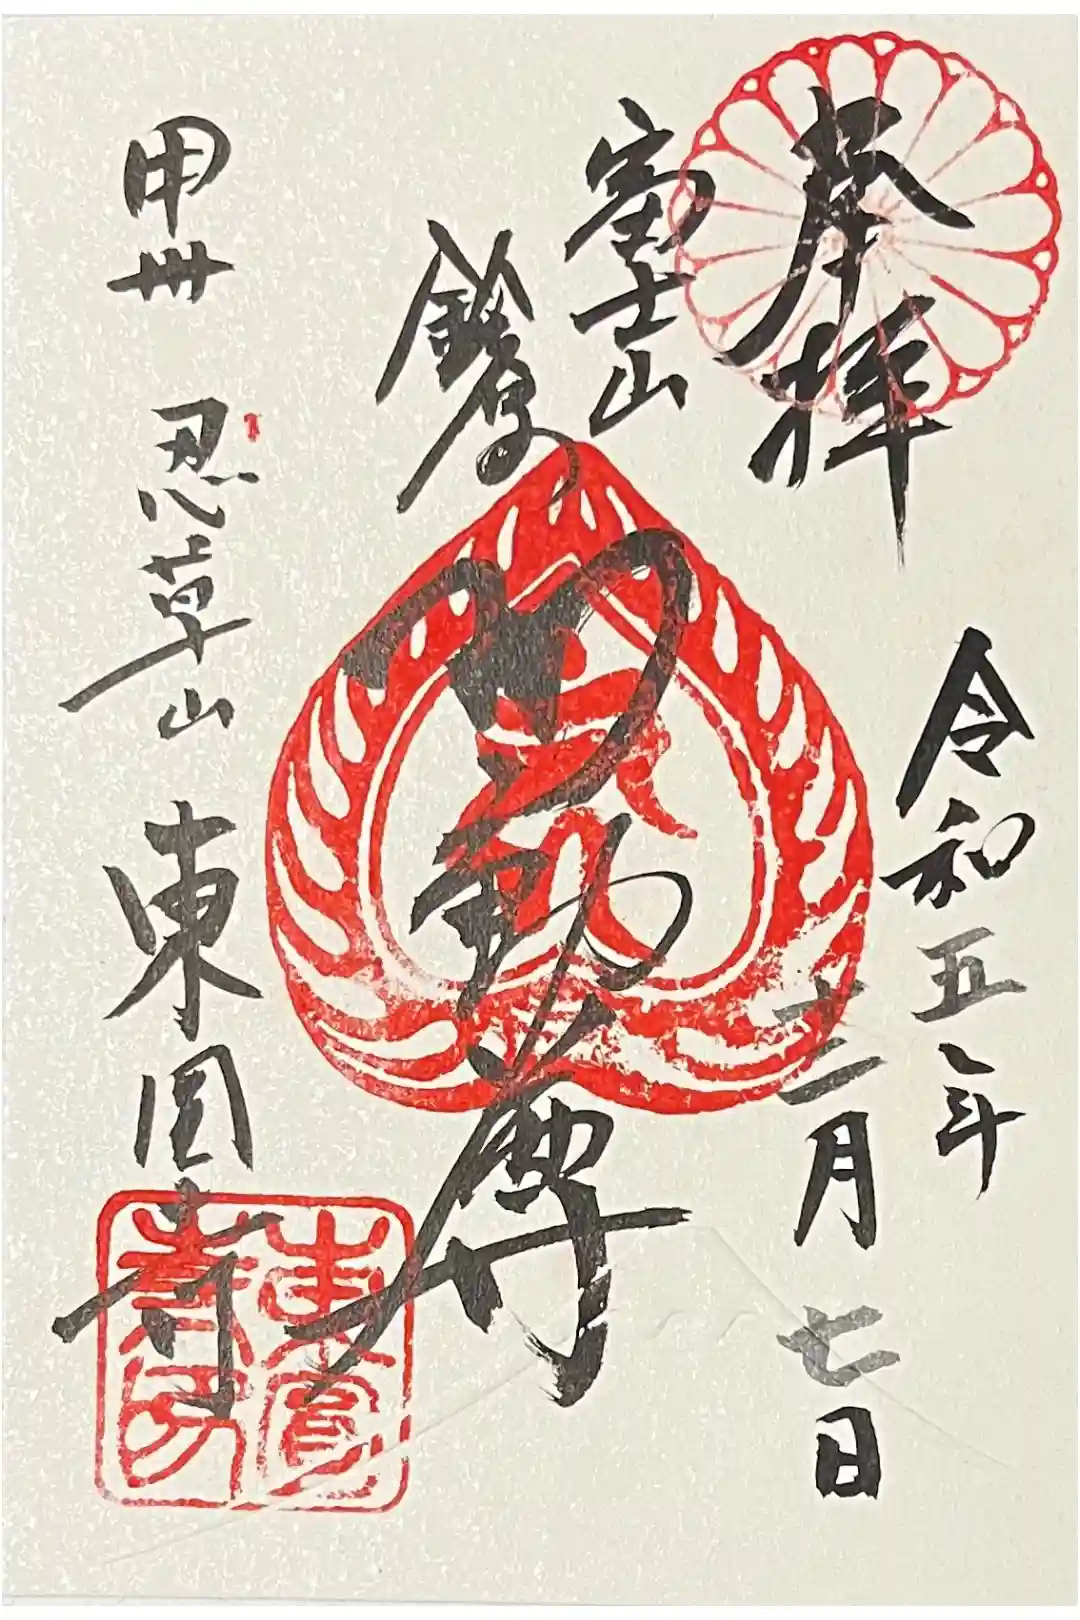 奉拝
令和五年
十二月七日
富士山
不動尊
甲州 忍草山 東圓寺
東圓寺印